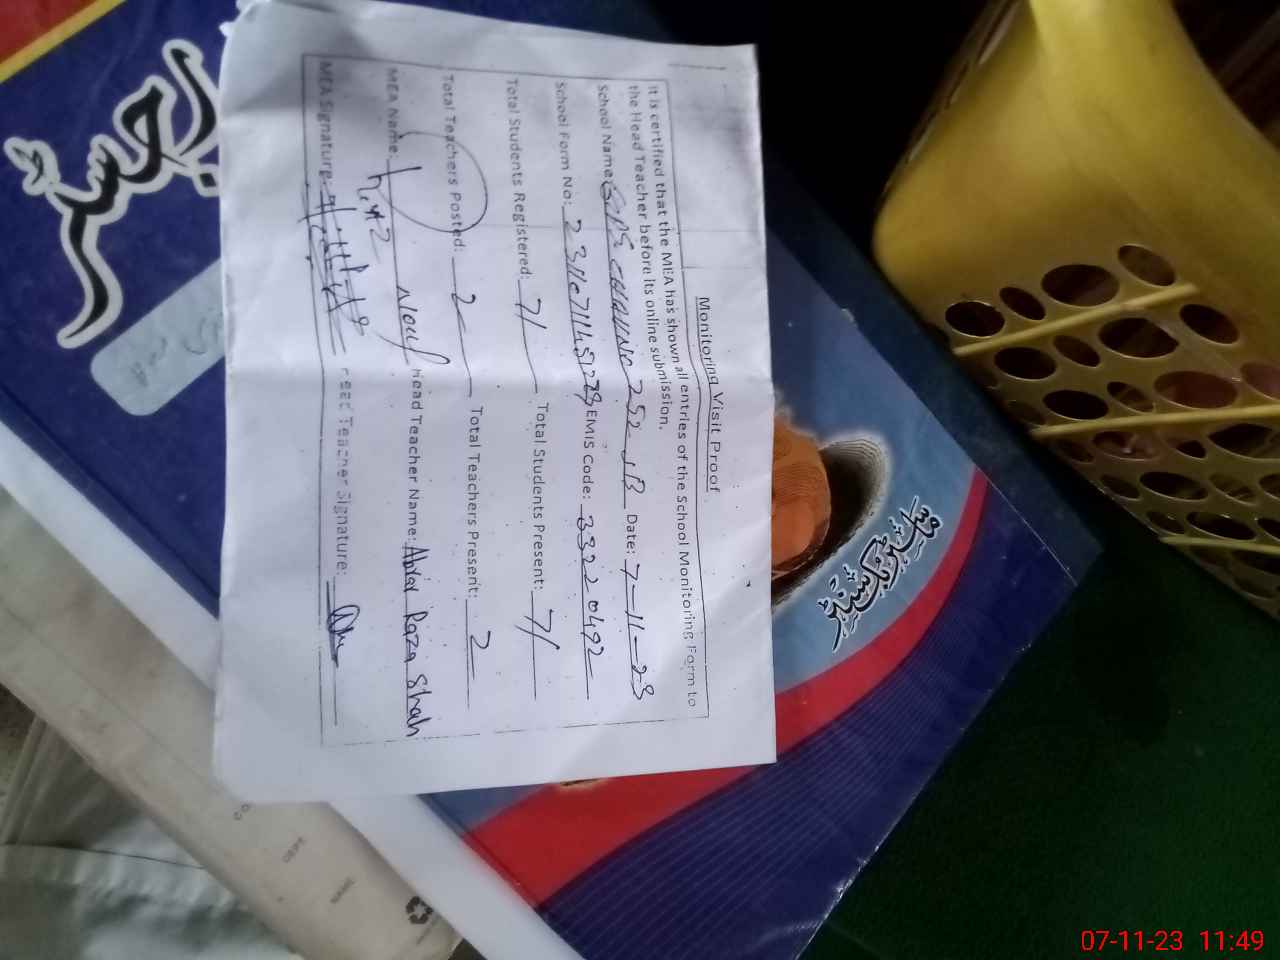 Monitoring Visit Proof
It is certified that the MEA has shown all entries of the School Monitoring Form to
the Head Teacher before its online submission.
School Name: GPS 252 JB Date: 7-11-23
School Form No: EMIS Code: 33220492
Total Students Registered: 71 Total Students Present: 71
Total Teachers Posted: 2 Total Teachers Present: 2
MEA Name: Head Teacher Name: Abrar Raza Shah
MEA Signature: Head Teacher Signature:
رجسٹر
ماسٹر
DEPT
NAME
07-11-23 11:49